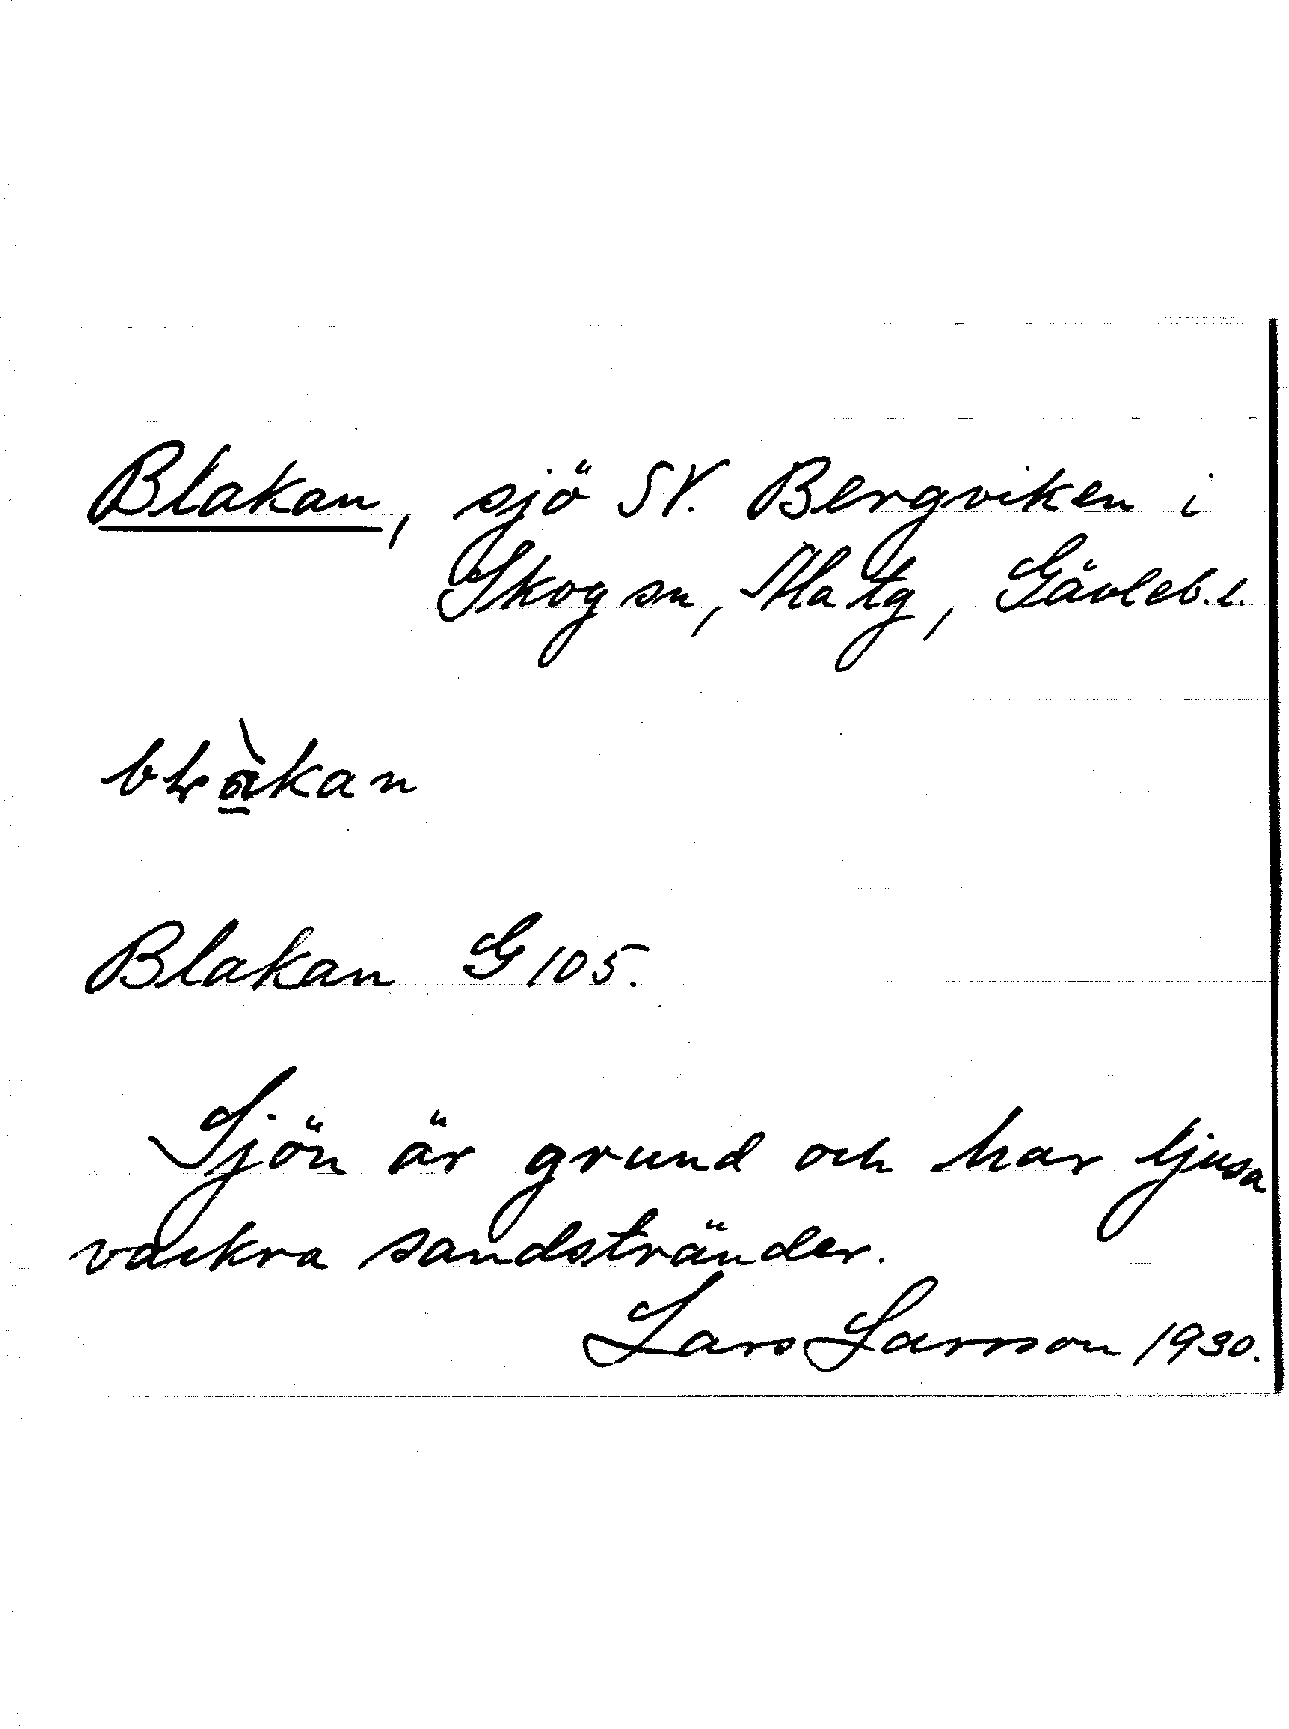 Blakan, sjö SV. Bergviken i
Skog sn, Ala tg, Gävleb.l.
bl̀akan
Blakan G 105.
Sjön är grund och har ljusa
vackra sandstränder.
Lars Larsson 1930.